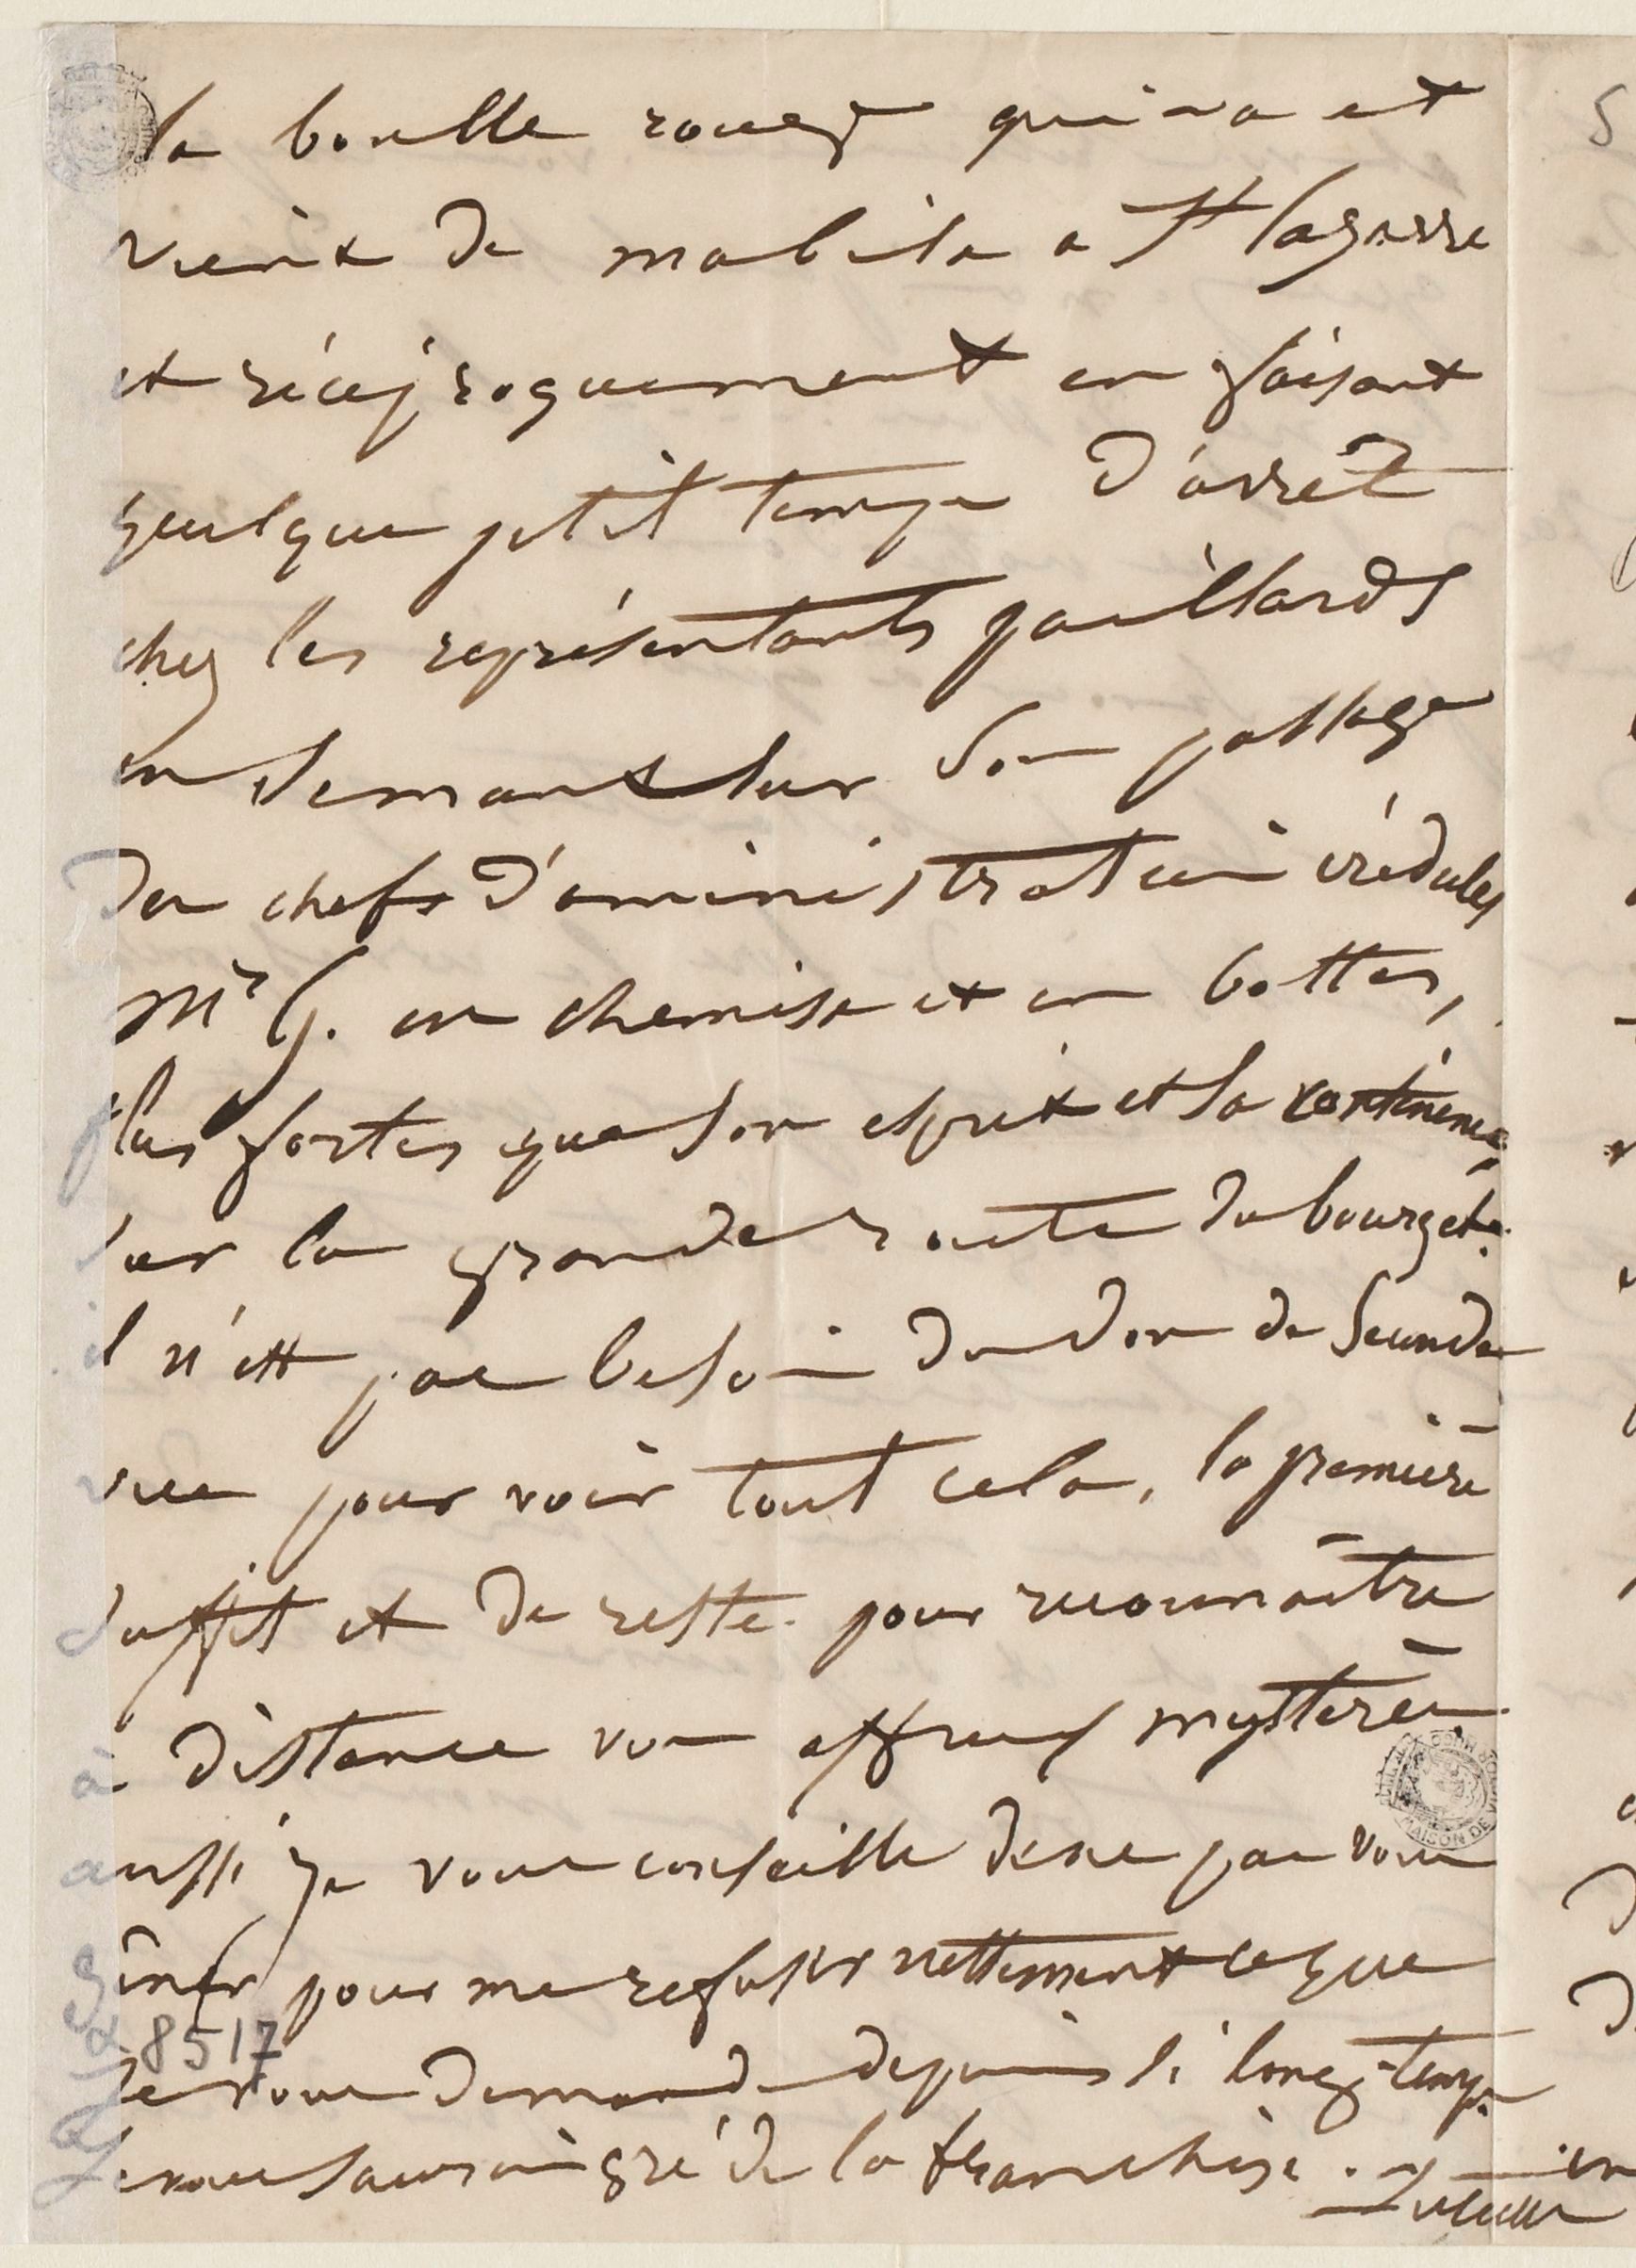 la boulle rouge qui va et
vient de mabile a St lazarre
et réciproquement en faisant
quelque petit temps d'arrêt
chez les représentants paillards
en semant sur son passage
des chefs d'aministration crédules
Mr G. en chemise et en bottes,
plus fortes que son esprit et sa continence
sur la grande route du bourget.
il n'est pas besoin du don de seconde
vue pour voir tout cela, la première
suffit et de reste pour reconnaître
à distance vos affreux mystères
aussi je vous conseille de ne pas vous
gêner pour me refuser nettement ce que
je vous demande depuis si long-temps
je vous saurai gré de la franchise.
8517
MAISON DE
5